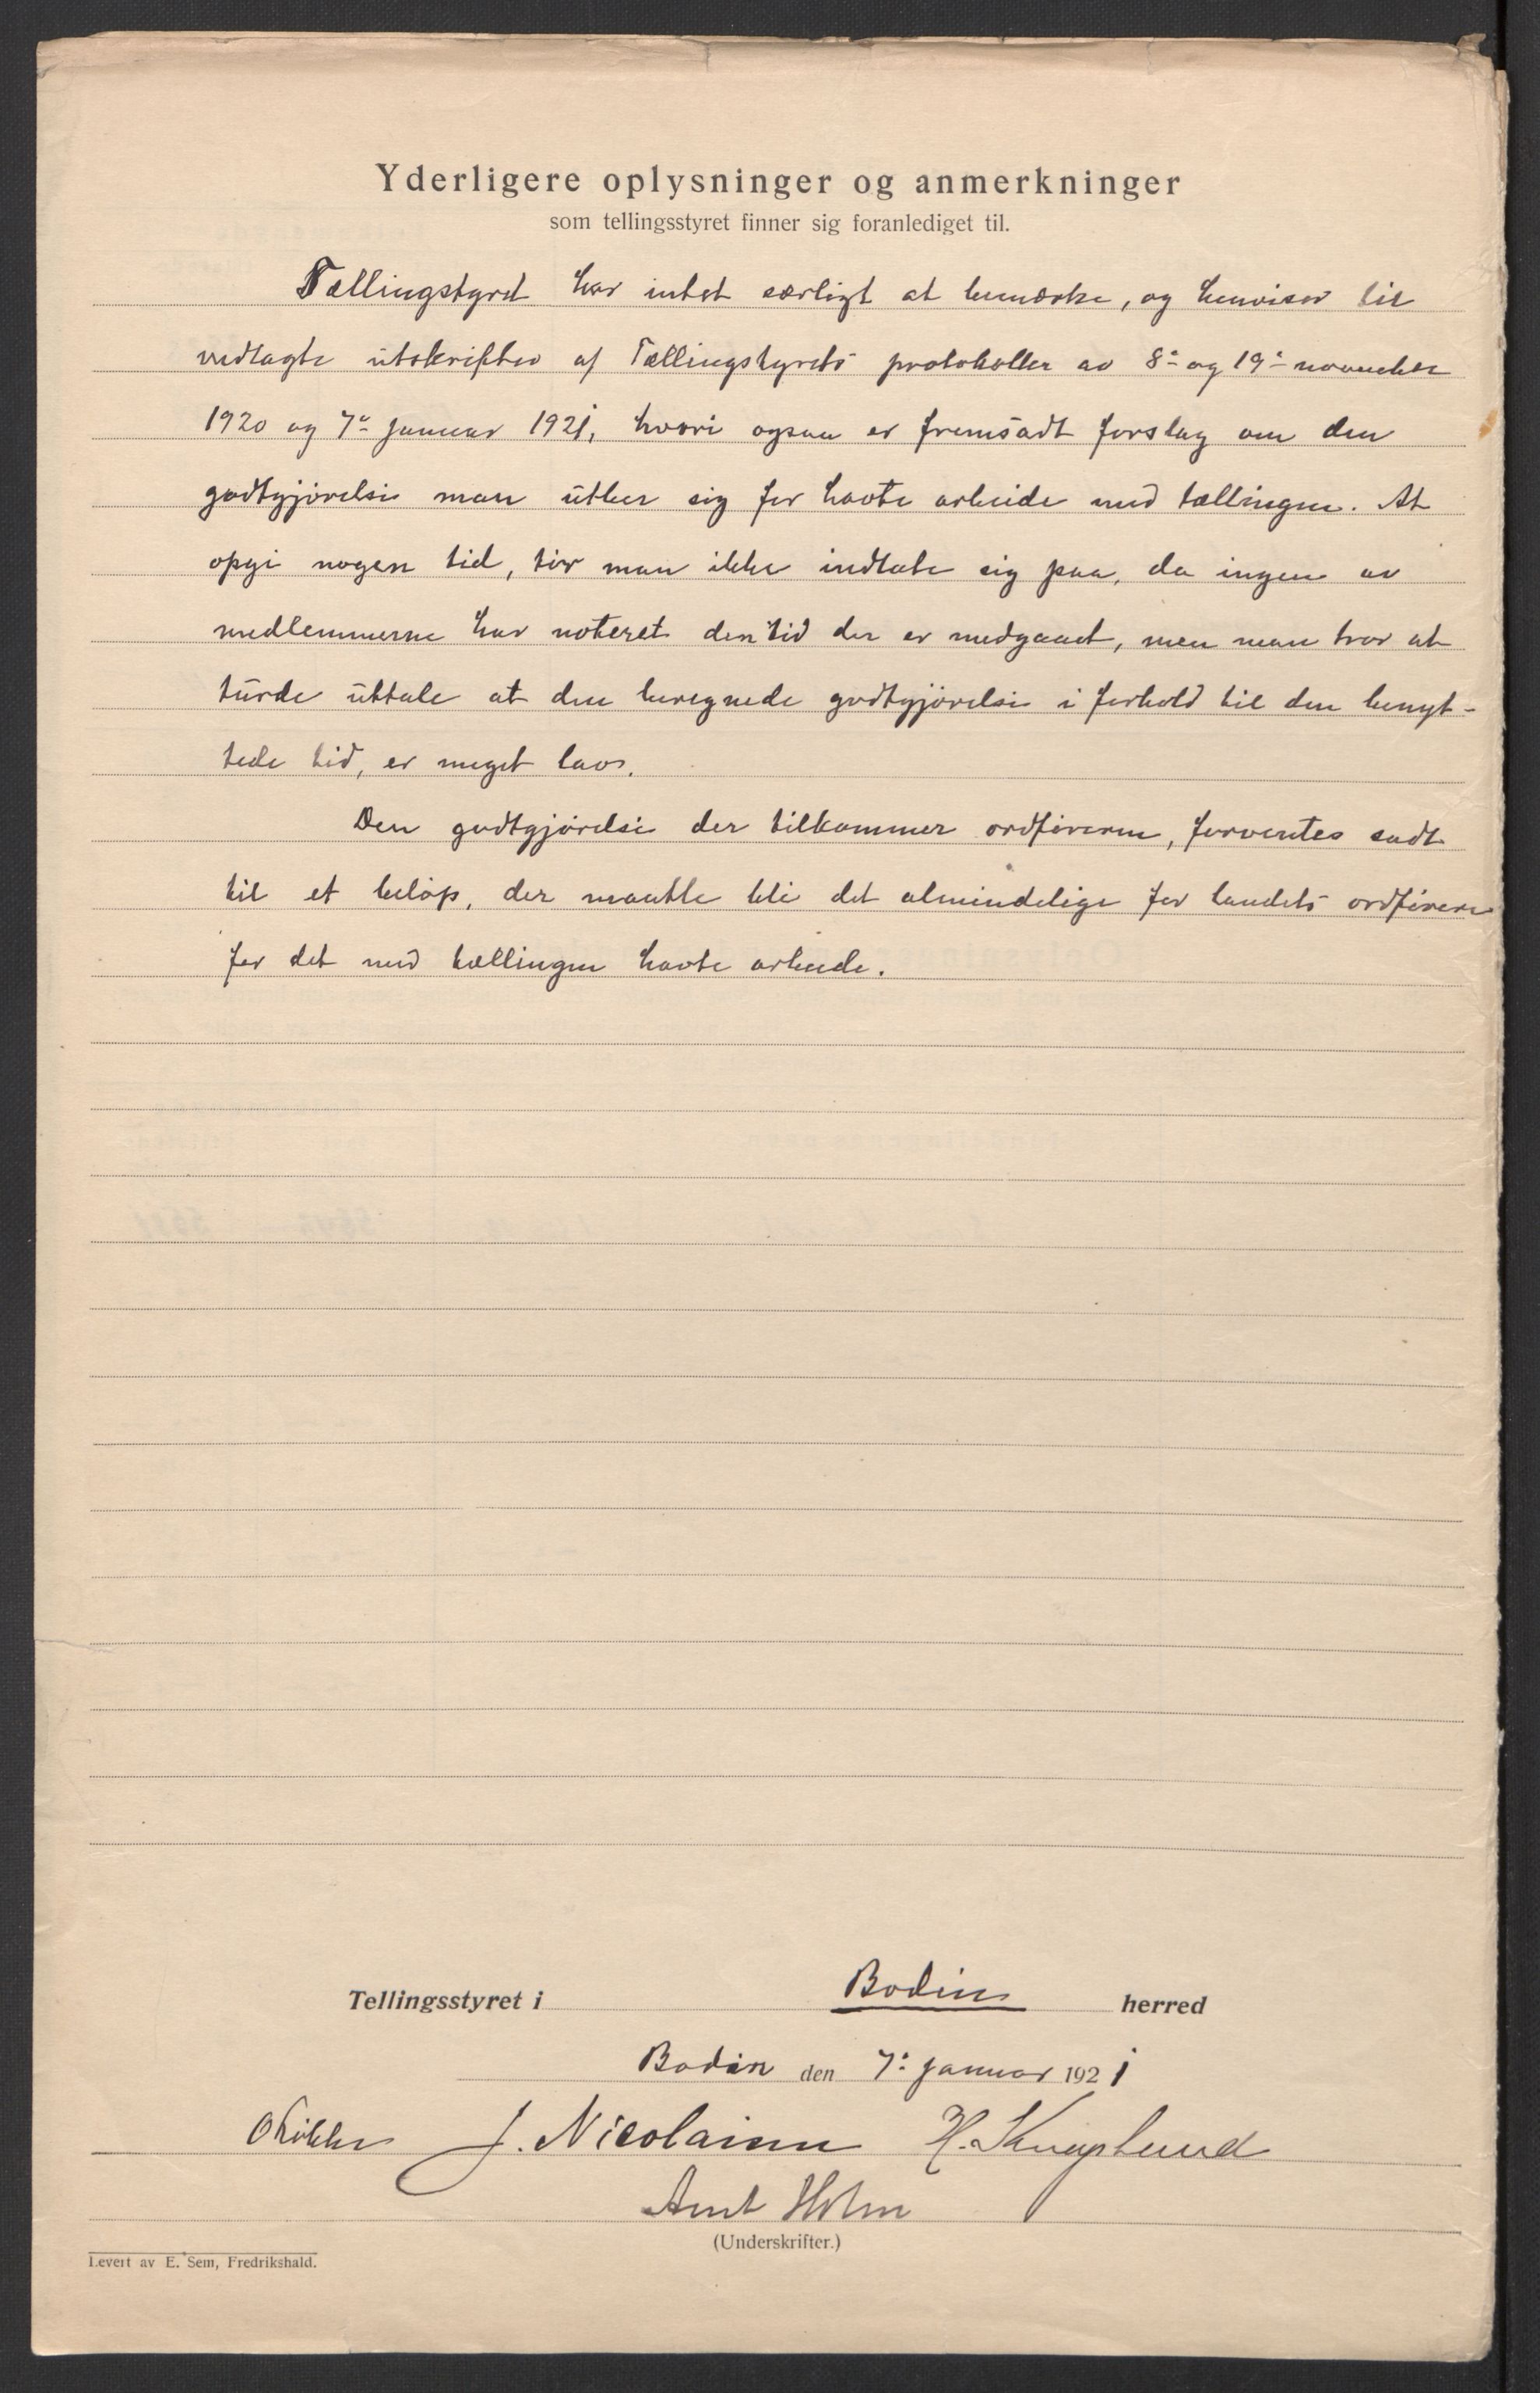 Yderligere oplysninger og anmerkninger
som tellingsstyret finner sig foranlediget til.
Tællingstyret har intet særligt at bemærke, og henviser til
vedlagte utskrifter af Tællingstyrets protokoller av 8de og 19de november
1920 og 7de januar 1921, hvori ogsaa er fremsadt forslag om den
godtgjörelse man utber sig for havte arbeide med tællingen. At
opgi nogen tid, tör man ikke indlate sig paa, da ingen av
medlemmerne har noteret den tid der er medgaaet, men man tror at
turde uttale at den beregnede godtgjörelse i forhold til den benyt-
tede tid, er meget lav.
Den godtgjörelse der tilkommer ordföreren, forventes sadt
til et belöp, der maatte bli det almindelige for landets ordförere
for det med tællingen havte arbeide.
Tellingsstyret i Bodin herred
Bodin den 7. januar 1921
J. Nicolaisen H. Knaplund
Arnt Holm
(Underskrifter.)
Levert av E. Sem, Fredrikshald.